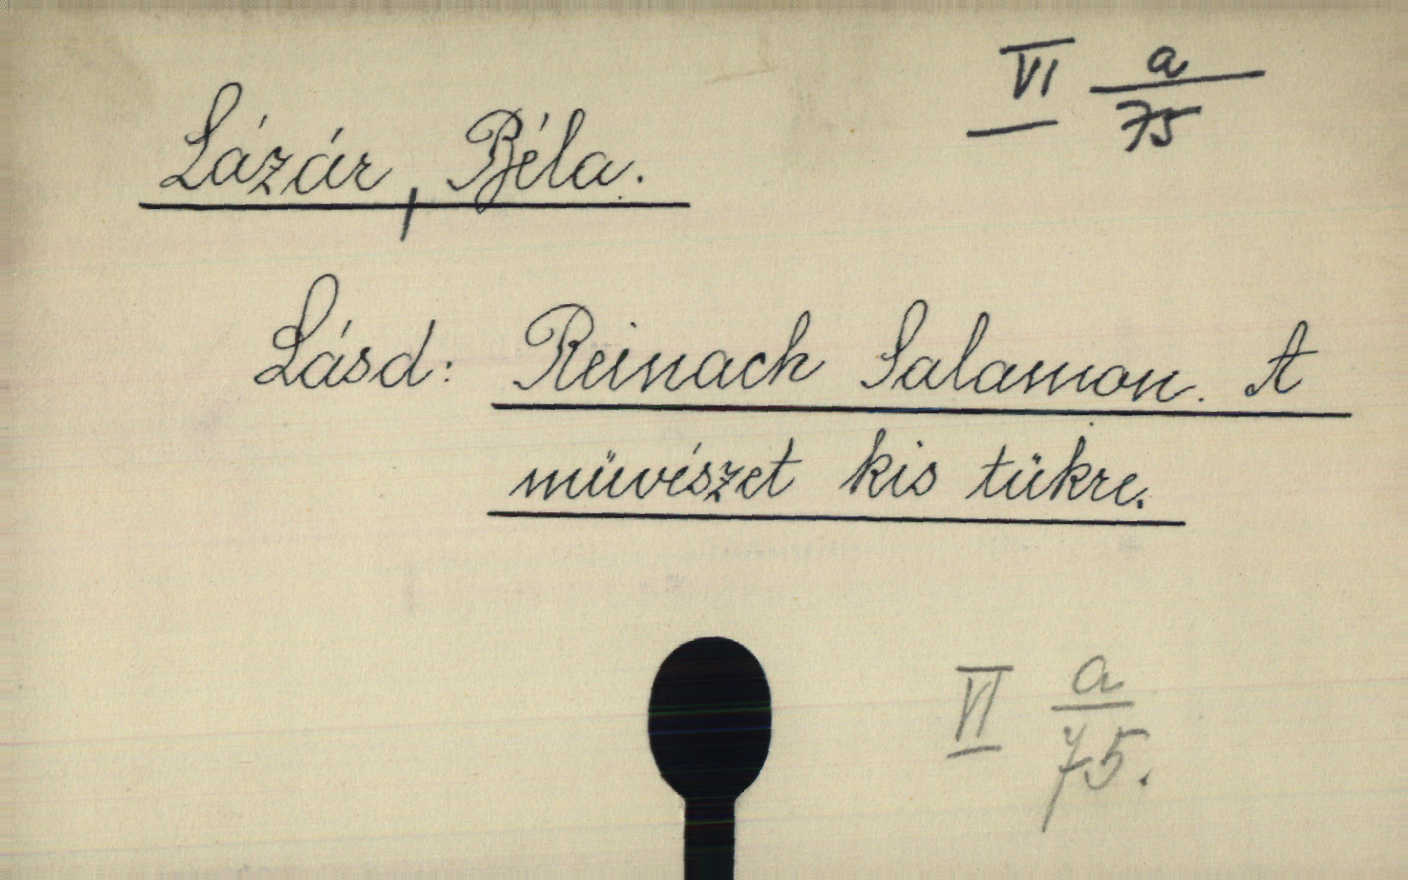 VI a/75
Lázár, Béla.
Lásd: Reinach Salamon. A
müvészet kis tükre.
VI a/75.